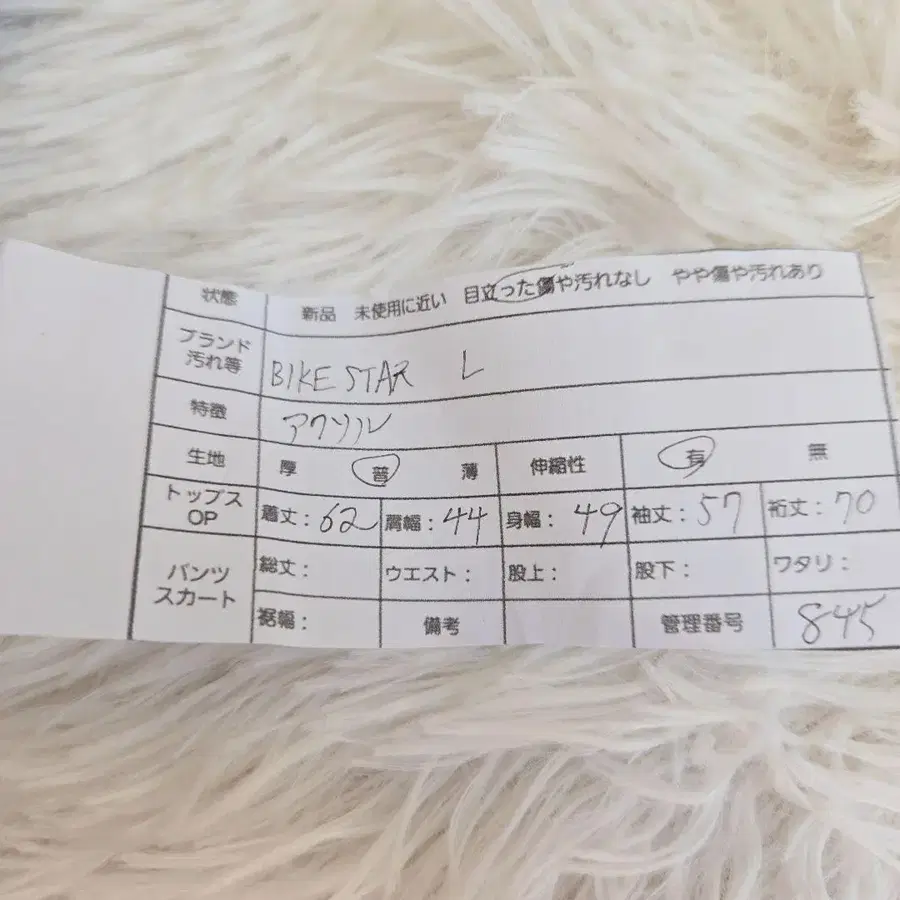 状態 新品 未使用に近い 目立った傷や汚れなし やや傷や汚れあり
ブランド
汚れ等 BIKE STAR L
特徴 アクリル
生地 厚 普 薄 伸縮性 有 無
トップス
OP 着丈:62 肩幅:44 身幅:49 袖丈:57 裄丈:70
パンツ
スカート 総丈: ウエスト: 股上: 股下: ワタリ:
裾幅: 備考 管理番号 845